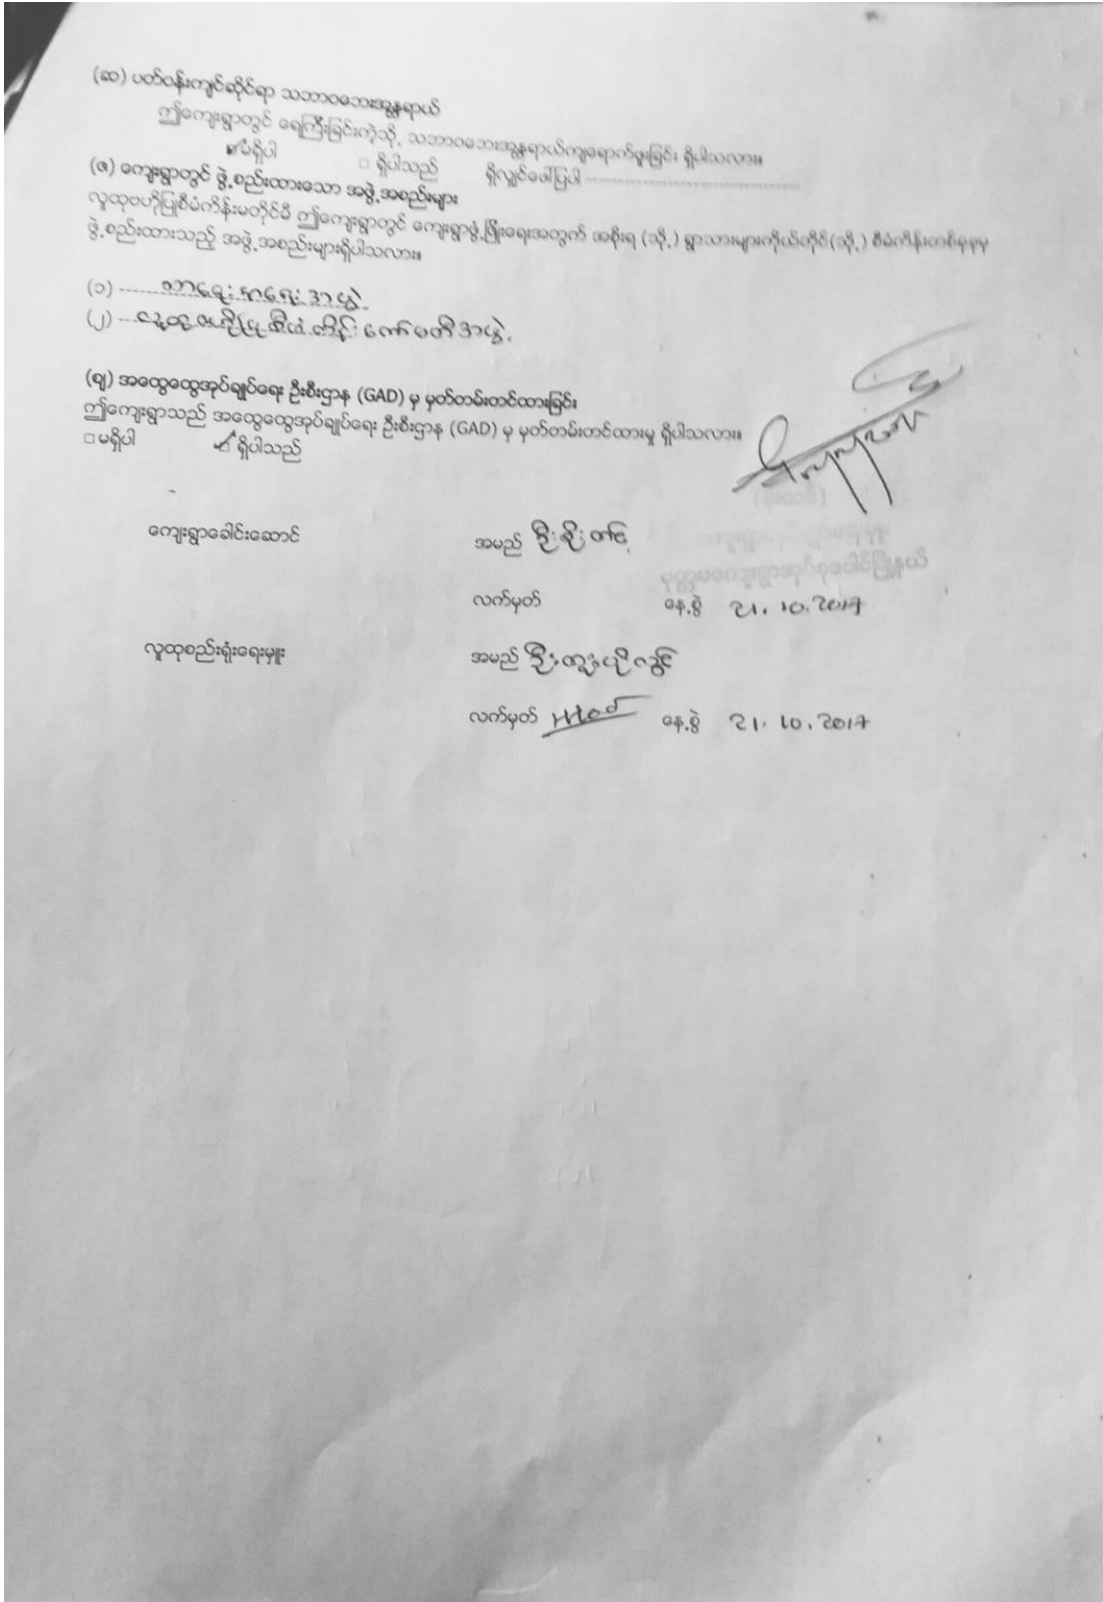 (ဆ) ပတ်ဝန်းကျင်ဆိုင်ရာ သဘာဝဘေးအန္တရာယ်
ဤကျေးရွာတွင် ရေကြီးခြင်းကဲ့သို့ သဘာဝဘေးအန္တရာယ်ကျရောက်ဖူးခြင်း ရှိပါသလား။
☑ မရှိပါ □ ရှိပါသည် ရှိလျှင်ဖေါ်ပြပါ
(ဇ) ကျေးရွာတွင် ဖွဲ့စည်းထားသော အဖွဲ့အစည်းများ
လူထုဗဟိုပြုစီမံကိန်းမတိုင်မီ ဤကျေးရွာတွင် ကျေးရွာဖွံ့ဖြိုးရေးအတွက် အစိုးရ (သို့) ရွာသားများကိုယ်တိုင်(သို့) စီမံကိန်းတစ်ခုခုမှ
ဖွဲ့စည်းထားသည့် အဖွဲ့အစည်းများရှိပါသလား။
(၁) သာရေးနာရေး အဖွဲ့
(၂) လူထုဗဟိုပြုစီမံကိန်း ကော်မတီအဖွဲ့
(ဈ) အထွေထွေအုပ်ချုပ်ရေး ဦးစီးဌာန (GAD) မှ မှတ်တမ်းတင်ထားခြင်း
ဤကျေးရွာသည် အထွေထွေအုပ်ချုပ်ရေး ဦးစီးဌာန (GAD) မှ မှတ်တမ်းတင်ထားမှု ရှိပါသလား။
□ မရှိပါ ☑ ရှိပါသည်
ကျေးရွာခေါင်းဆောင် အမည် ဦးစိုးတင့်
လက်မှတ် နေ့စွဲ 21.10.2017
လူထုစည်းရုံးရေးမှူး အမည်
လက်မှတ် နေ့စွဲ 21.10.2017